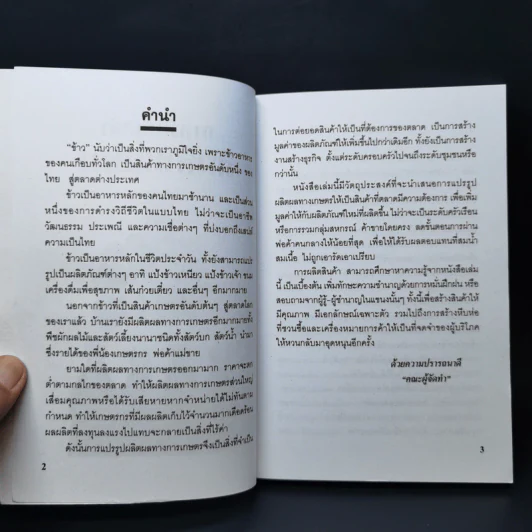 คำนำ
"ข้าว" นับว่าเป็นสิ่งที่พวกเราภูมิใจยิ่ง เพราะข้าวอาหาร
ของคนเกือบทั่วโลก เป็นสินค้าทางการเกษตรอันดับหนึ่ง ของ
ไทย สู่ตลาดต่างประเทศ
ข้าวเป็นอาหารหลักของคนไทยมาช้านาน และเป็นส่วน
หนึ่งของการดำรงวิถีชีวิตในแบบไทย ไม่ว่าจะเป็นอาชีพ
วัฒนธรรม ประเพณี และความเชื่อต่างๆ ที่บ่งบอกถึงเสน่ห์
ความเป็นไทย
ข้าวเป็นอาหารหลักในชีวิตประจำวัน ทั้งยังสามารถแปร
รูปเป็นผลิตภัณฑ์ต่างๆ อาทิ แป้งข้าวเหนียว แป้งข้าวเจ้า ขนม
เครื่องดื่มเพื่อสุขภาพ เส้นก๋วยเตี๋ยว และอื่นๆ อีกมากมาย
นอกจากข้าวที่เป็นสินค้าเกษตรอันดับต้นๆ สู่ตลาดโลก
ของเราแล้ว บ้านเรายังมีผลิตผลทางการเกษตรอีกมากมายทั้ง
พืชผักผลไม้และสัตว์เลี้ยงนานาชนิดทั้งสัตว์บก สัตว์น้ำ นำมา
ซึ่งรายได้ของพี่น้องเกษตรกร พ่อค้าแม่ขาย
ยามใดที่ผลิตผลทางการเกษตรออกมามาก ราคาจะตก
ต่ำตามกลไกของตลาด ทำให้ผลิตผลทางการเกษตรส่วนใหญ่
เสื่อมคุณภาพหรือได้รับเสียหายหากจำหน่ายได้ไม่ทันตาม
กำหนด ทำให้เกษตรกรที่มีผลผลิตเก็บไว้จำนวนมากเดือดร้อน
ผลผลิตที่ลงทุนลงแรงไปแทบจะกลายเป็นสิ่งที่ไร้ค่า
ดังนั้นการแปรรูปผลิตผลทางการเกษตรจึงเป็นสิ่งที่จำเป็น
2
ในการต่อยอดสินค้าให้เป็นที่ต้องการของตลาด เป็นการสร้าง
มูลค่าของผลิตภัณฑ์ให้เพิ่มขึ้นไปกว่าเดิมอีก ทั้งยังเป็นการสร้าง
งานสร้างธุรกิจ ตั้งแต่ระดับครอบครัวไปจนถึงระดับชุมชนหรือ
กว่านั้น
หนังสือเล่มนี้มีวัตถุประสงค์ที่จะนำเสนอการแปรรูป
ผลิตผลทางเกษตรให้เป็นสินค้าที่ตลาดมีความต้องการ เพื่อเพิ่ม
มูลค่าให้กับผลิตภัณฑ์ใหม่ที่ผลิตขึ้น ไม่ว่าจะเป็นระดับครัวเรือน
หรือการรวมกลุ่มสหกรณ์ ค้าขายโดยตรง ลดขั้นตอนการผ่าน
พ่อค้าคนกลางให้น้อยที่สุด เพื่อให้ได้รับผลตอบแทนที่สมน้ำ
สมเนื้อ ไม่ถูกเอารัดเอาเปรียบ
การผลิตสินค้า สามารถศึกษาหาความรู้จากหนังสือเล่ม
นี้ เป็นเบื้องต้น เพิ่มทักษะความชำนาญด้วยการหมั่นฝึกฝน หรือ
สอบถามจากผู้รู้-ผู้ชำนาญในแขนงนั้นๆ ทั้งนี้เพื่อสร้างสินค้าให้
มีคุณภาพ มีเอกลักษณ์เฉพาะตัว รวมไปถึงการสร้างหีบห่อ
ที่ชวนซื้อและเครื่องหมายการค้าให้เป็นที่จดจำของผู้บริโภค
ให้หวนกลับมาอุดหนุนอีกครั้ง
ด้วยความปรารถนาดี
"คณะผู้จัดทำ"
3